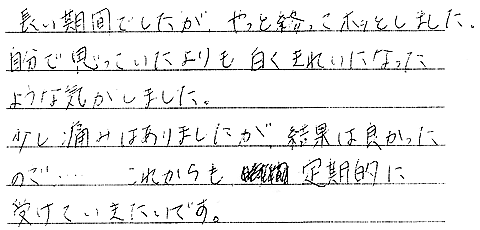 長い期間でしたが、やっと終ってホッとしました。
自分で思っていたよりも白くきれいになった
ような気がしました。
少し痛みはありましたが、結果は良かった
ので…… これからも 定期的に
受けていきたいです。